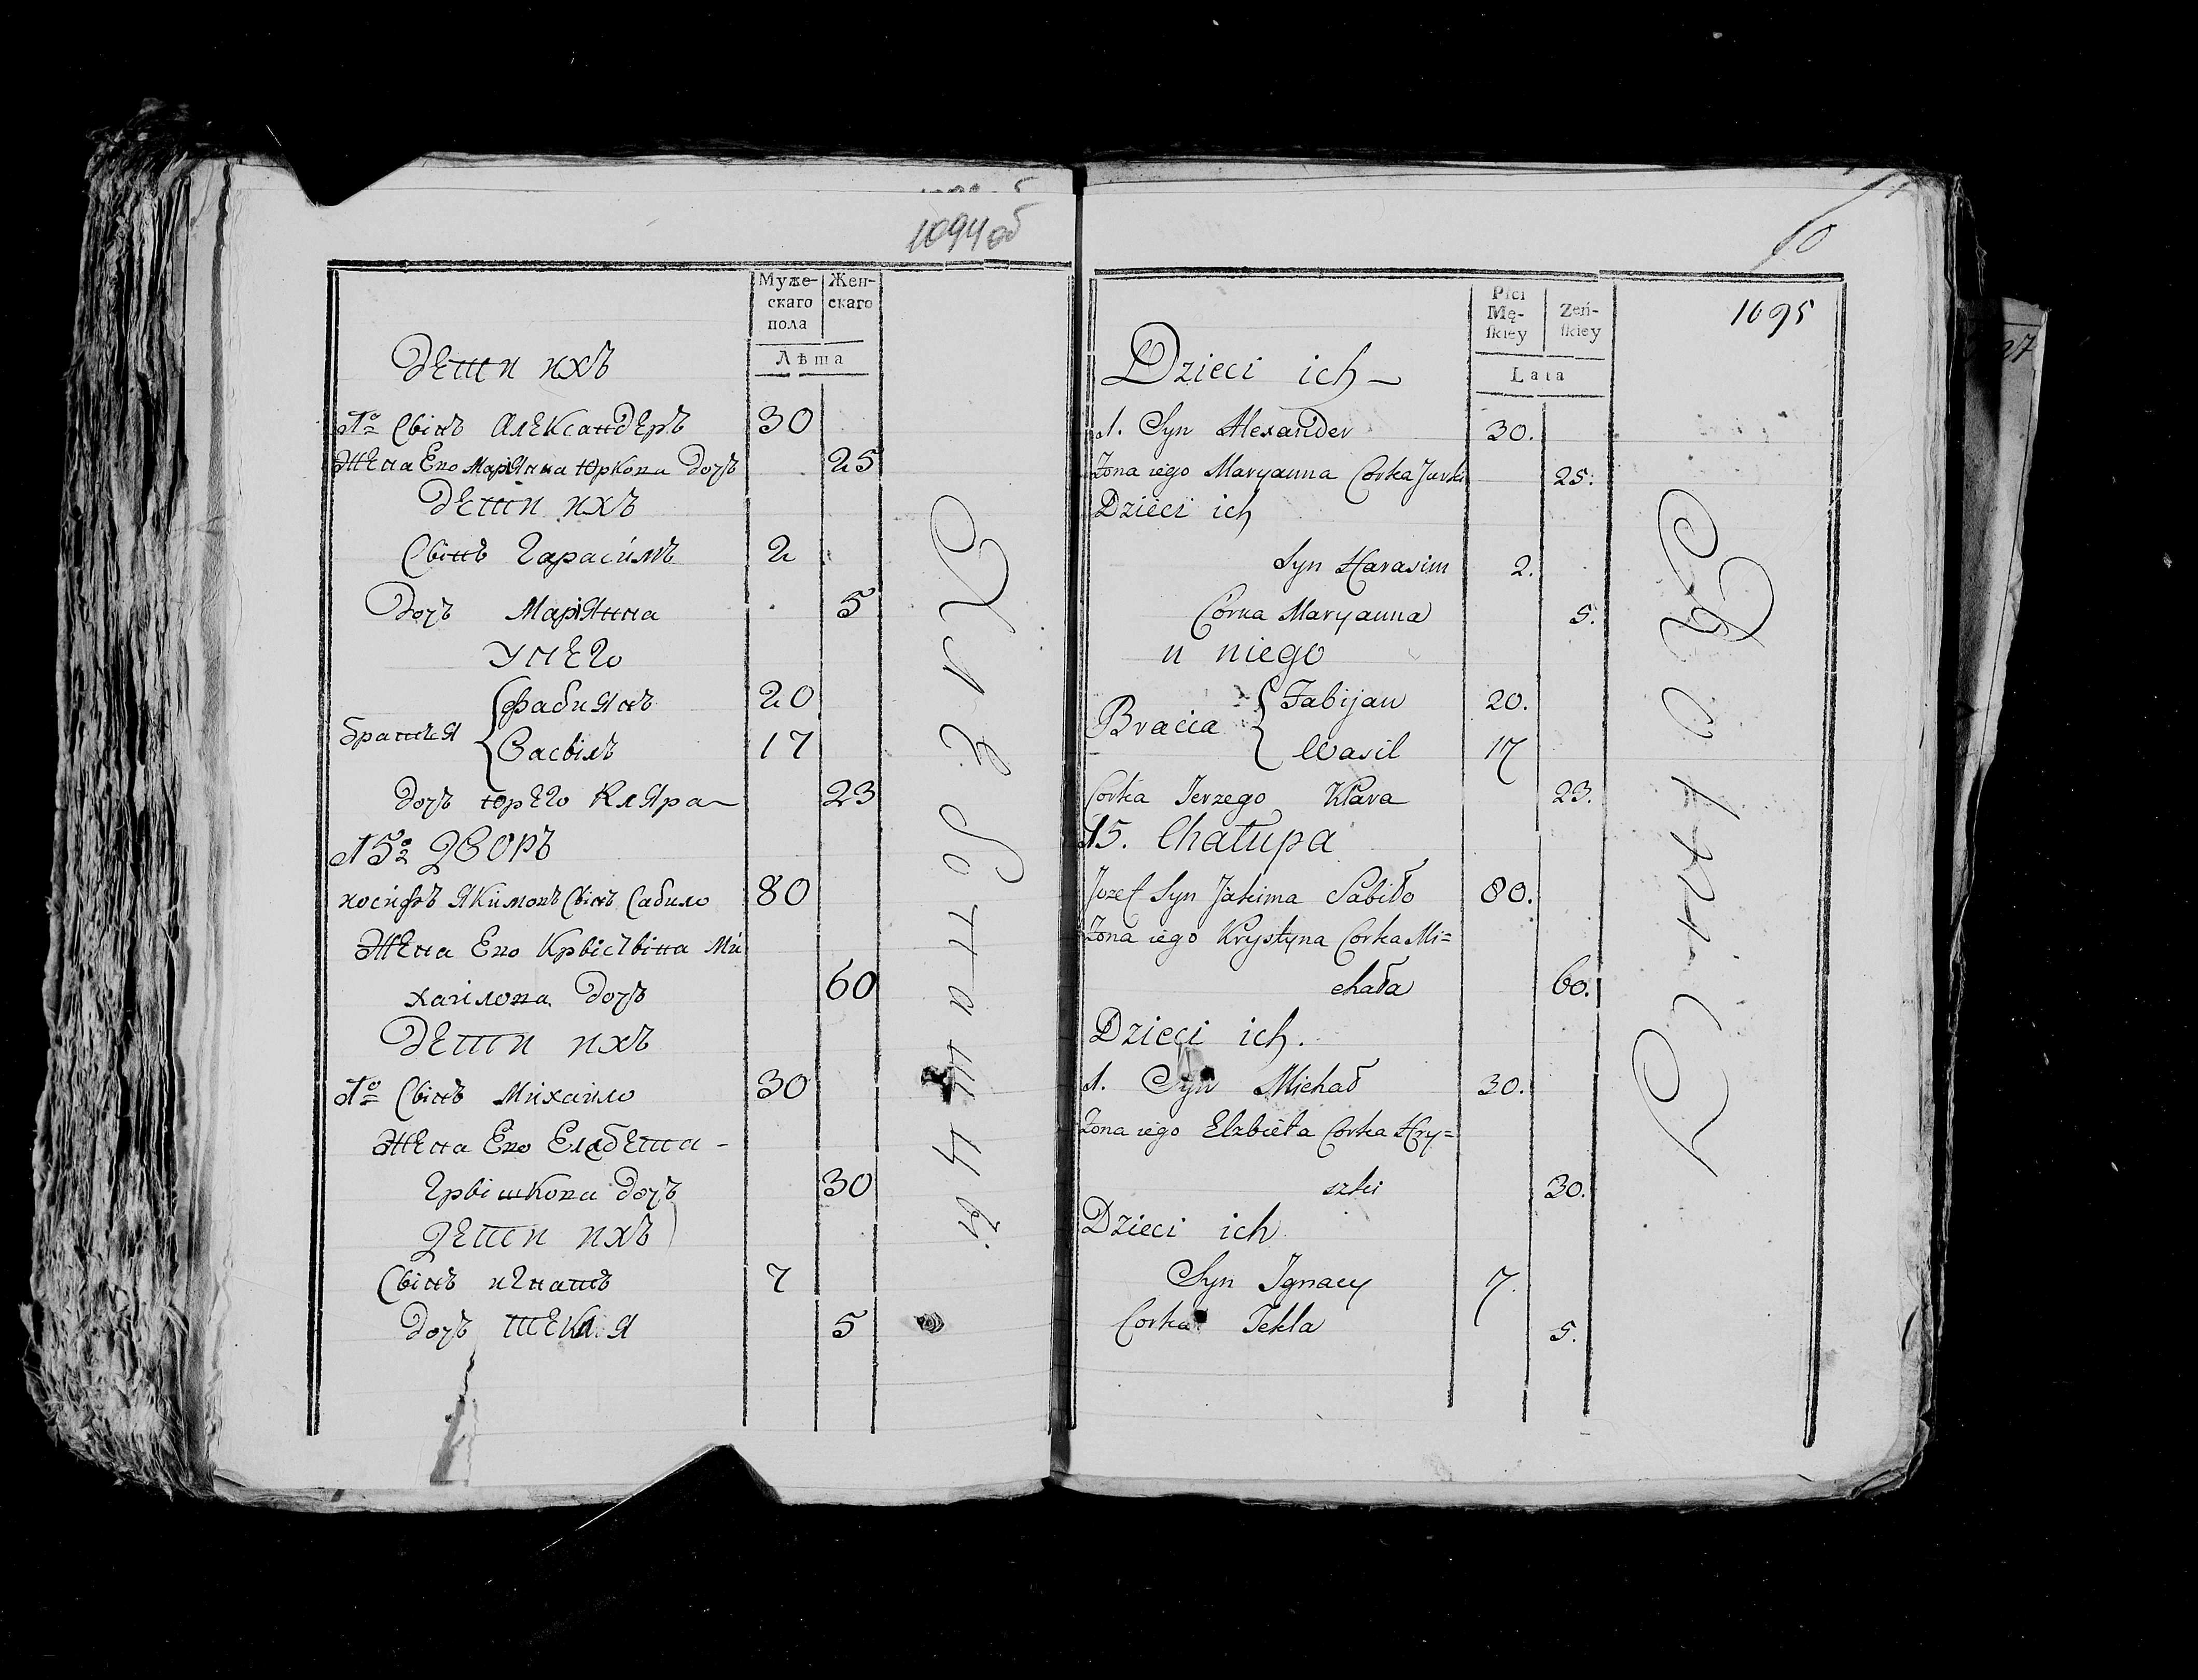 1094 об
Муже-
скаго
пола
Жен-
скаго
Лѣта
Дети ихъ
1о Свінъ Александеръ 30
Жена Его Маріянна Юркова Дочъ 25
Дети ихъ
Свінъ Гарасимъ 2
Дочъ Маріянна 5
У него
братья
Фабиянъ 20
Васвіль 17
Дочъ Юрего Кляра 23
15о Дворъ
Іосифъ Якимовъ Свінъ Сабило 80
Жена Его Крвіствіна Ми
хаилова Дочъ 60
Дети ихъ
1о Свінъ Михаило 30
Жена Его Елзбета -
Грвішкова Дочъ 30
Дети ихъ
Свінъ игнатъ 7
Дочъ Текля 5
10
1095
Płci
Mę-
skiey
Żeń-
skiey
Lata
Dzieci ich
1. Syn Alexander 30.
Zona iego Maryanna Corka Jurki 25.
Dzieci ich
Syn Harasim 2.
Córka Maryanna 5.
u niego
Bracia
Fabijan 20.
Wasil 17
Corka Jerzego Klara 23.
15. Chałupa
Jozef Syn Jakima Sabiło 80.
Zona iego Krystyna Corka Mi=
chała 60.
Dzieci ich.
1. Syn Michał 30.
Zona iego Elzbieta Corka Hry=
szki 30.
Dzieci ich
Syn Ignacy 7.
Corka Tekla 5.